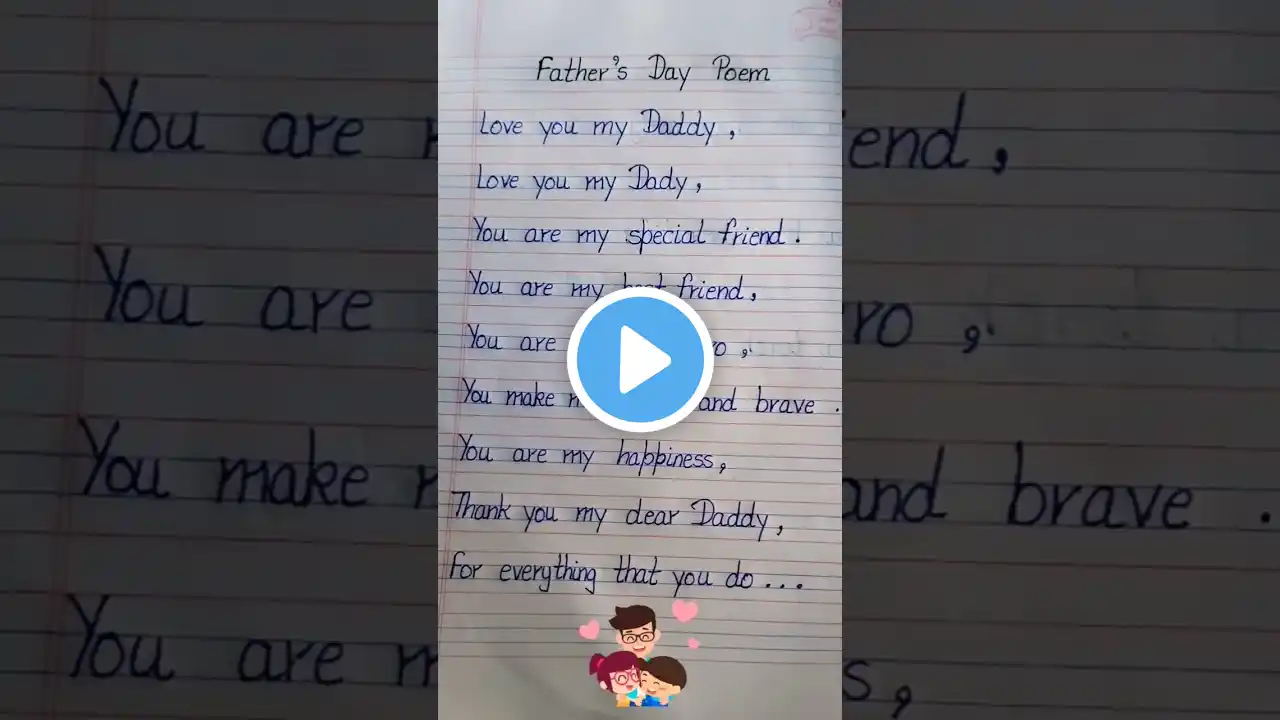 Father's Day Poem
Love you my Daddy,
Love you my Dady,
You are my special friend.
You are my best friend,
You are
You make and brave.
You are my happiness,
Thank you my dear Daddy,
For everything that you do...